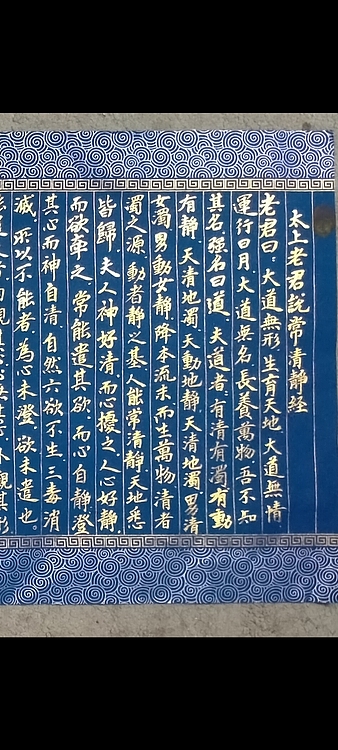 太上老君說常清靜經
老君曰：大道無形，生育天地，大道無情
運行日月，大道無名，長養萬物，吾不知
其名，强名曰道，夫道者，有清有濁，有動
有靜，天清地濁，天動地靜，天清地濁，男清
女濁，男動女靜，降本流末而生萬物，清者
濁之源，動者靜之基，人能常清靜，天地悉
皆歸，夫人神好清而心擾之，人心好靜，
而欲牽之，常能遣其欲，而心自靜，澄
其心而神自清，自然六欲不生，三毒消
滅，所以不能者，為心未澄，欲未遣也。